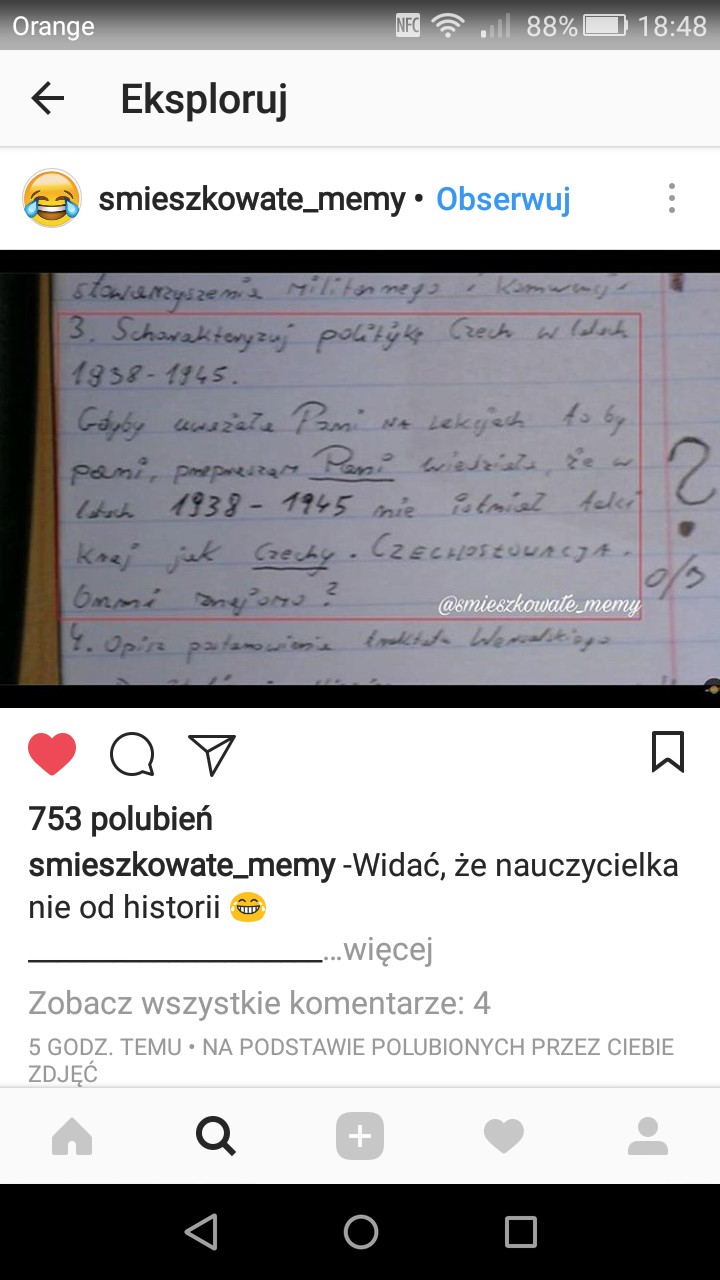 Orange
NFC
88%
18:48
Eksploruj
smieszkowate_memy • Obserwuj
stowarzyszenia militarnego i
3. Scharakteryzuj politykę Czech w latach
1938-1945.
Gdyby uważała Pani na lekcjach to by
pani, przepraszam Pani wiedziała, że w
latach 1938-1945 nie istniał taki
kraj jak Czechy. CZECHOSŁOWACJA.
znajomo?
@smieszkowate_memy
?
0/3
4. Opisz postanowienia traktatu Wersalskiego
753 polubień
smieszkowate_memy -Widać, że nauczycielka
nie od historii 😂
...więcej
Zobacz wszystkie komentarze: 4
5 GODZ. TEMU • NA PODSTAWIE POLUBIONYCH PRZEZ CIEBIE
ZDJĘĆ